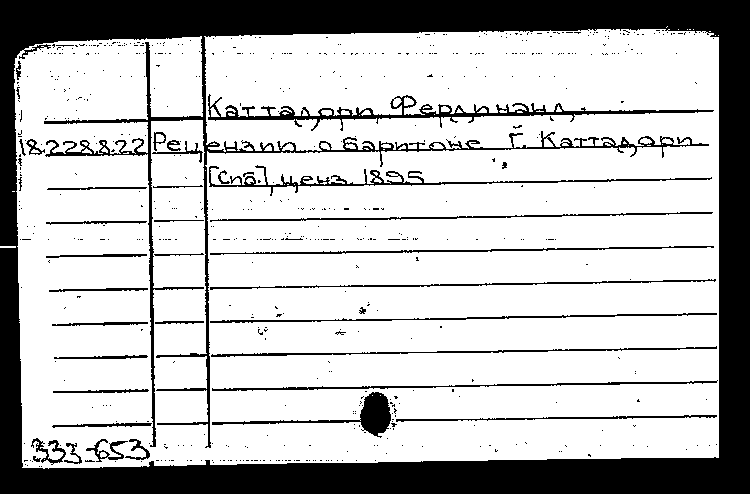 Каттадори, Фердинанд.
18.228.8.22 Рецензии о баритоне г. Каттадори
[Спб.], ценз. 1895
333-653